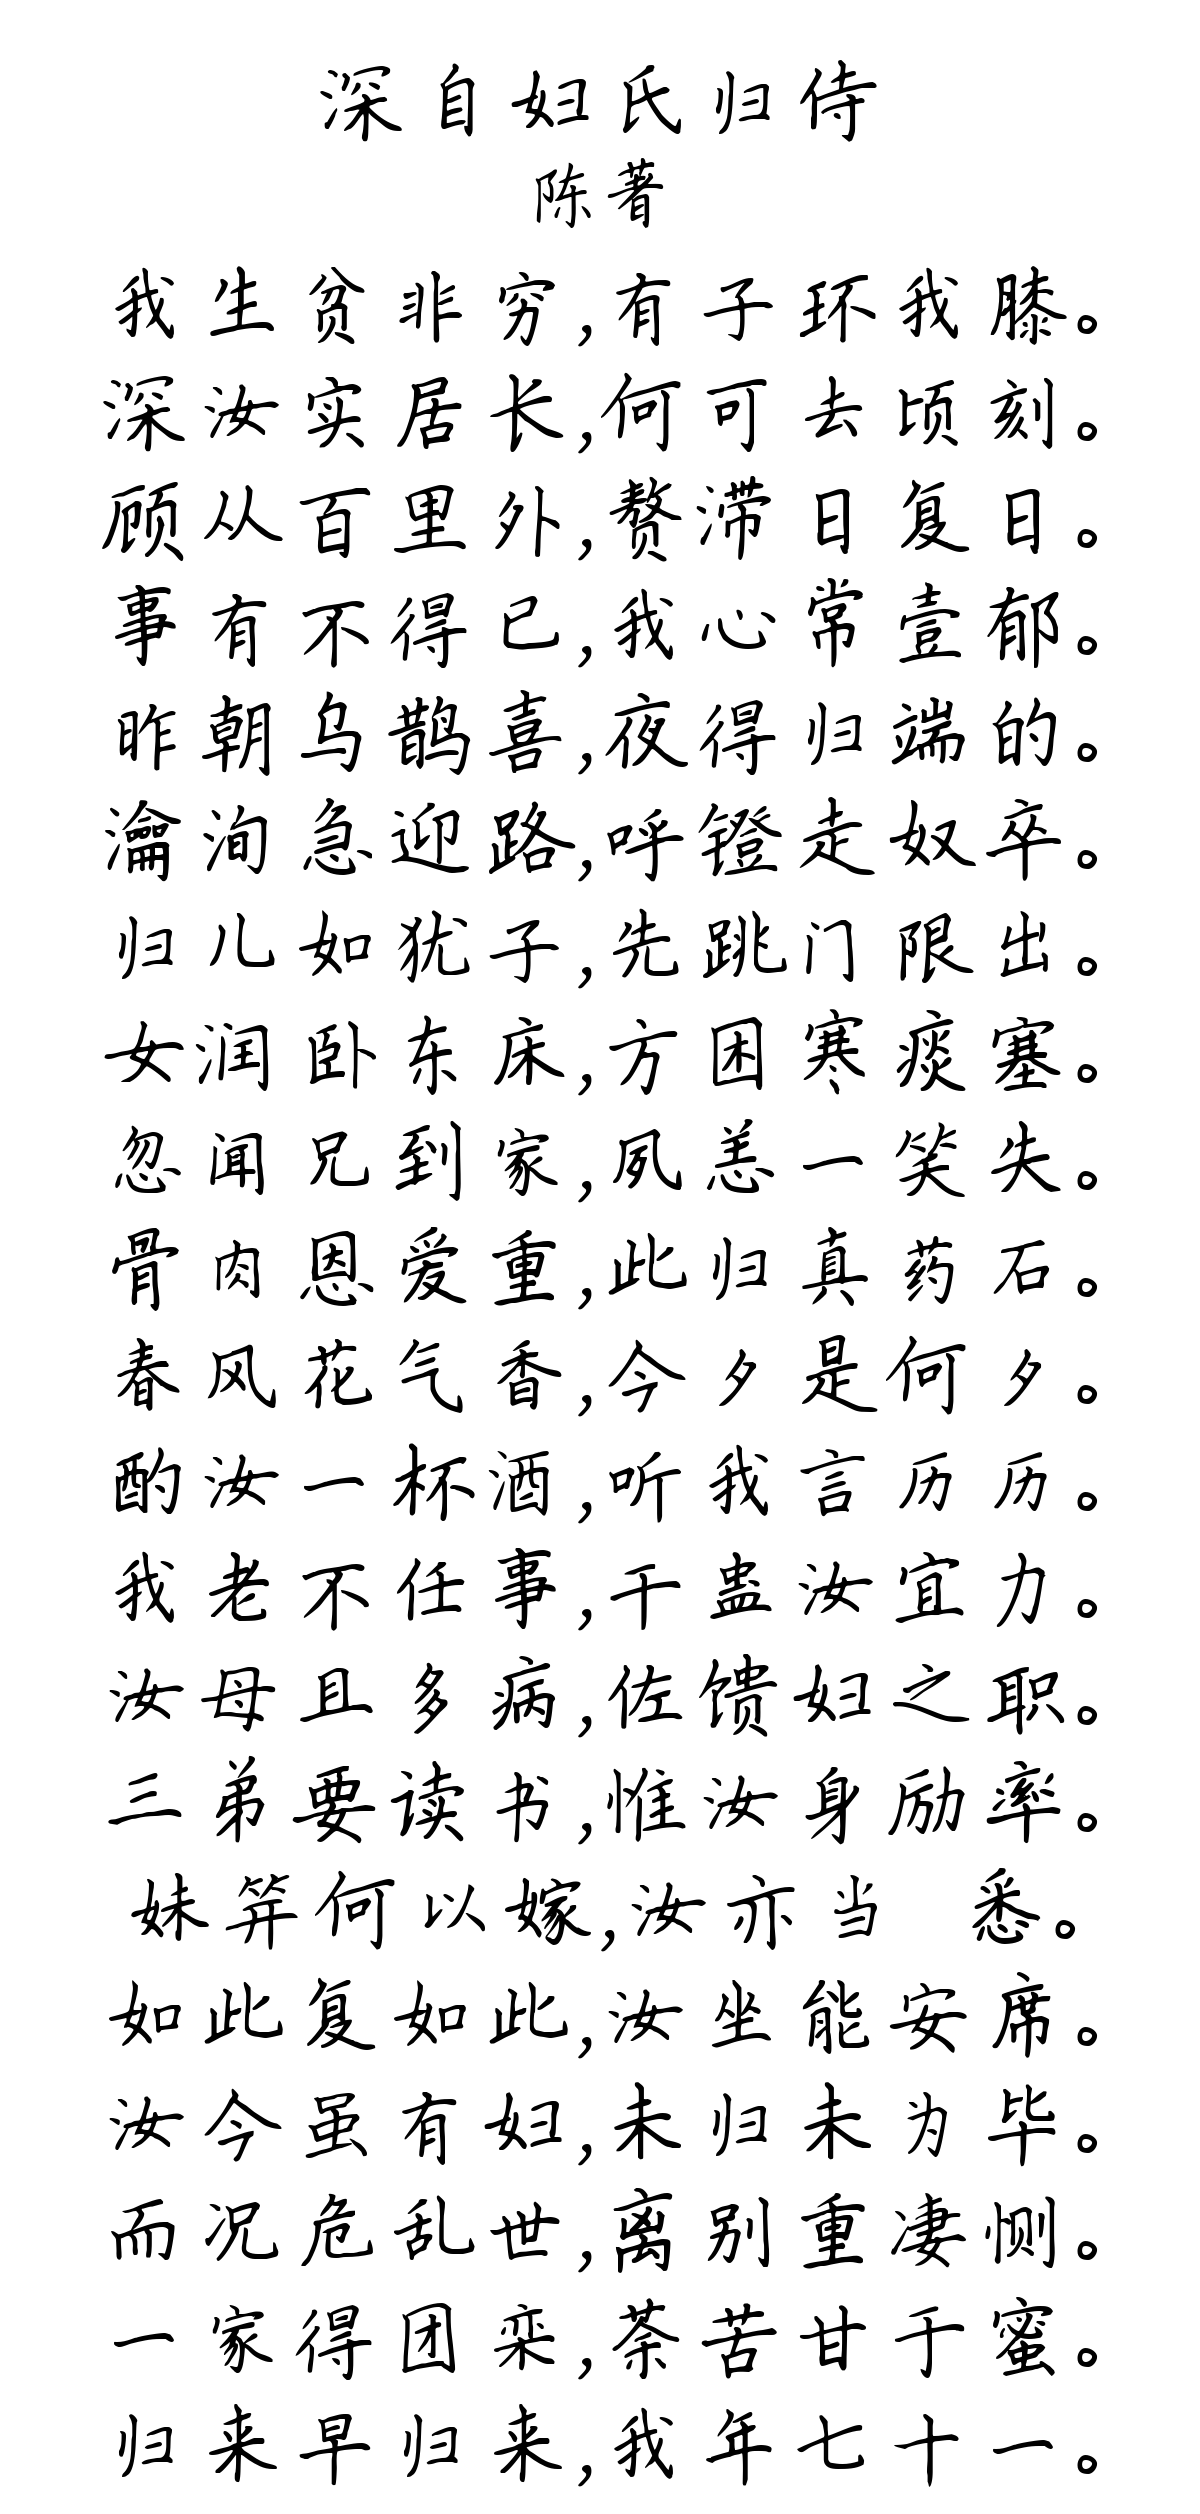 深自妇氏归侍
陈著
我生贫非穷,有子环我膝。
深汝实居长,何可去顷刻。
顾从百里外,赘滞日复日。
事有不得已,我心常壹郁。
昨朝乌鹊喜,夜得归端的。
瀹洵急迎路,呼走奴卒。
归儿如犹子,先跳门限出。
女涓卧东床,方困寒痰塞。
忽闻兄到家,风恙一笑失。
骨肉恩爱重,此归真药石。
春风花气香,今夕是何夕。
酌汝一杯酒,听我言历历。
我老不任事,干蛊汝宜力。
汝母且多病,佐馈妇之职。
二弟要读书,惟汝身励率。
妹笄何以嫁,汝亦当 悉。
如此复如此,汝坐能安席。
汝今虽有妇,未归未为毕。
而况危乱世,离别重凄恻。
一家得团栾,荼苦甘于蜜。
归来早归来,我年七十一。